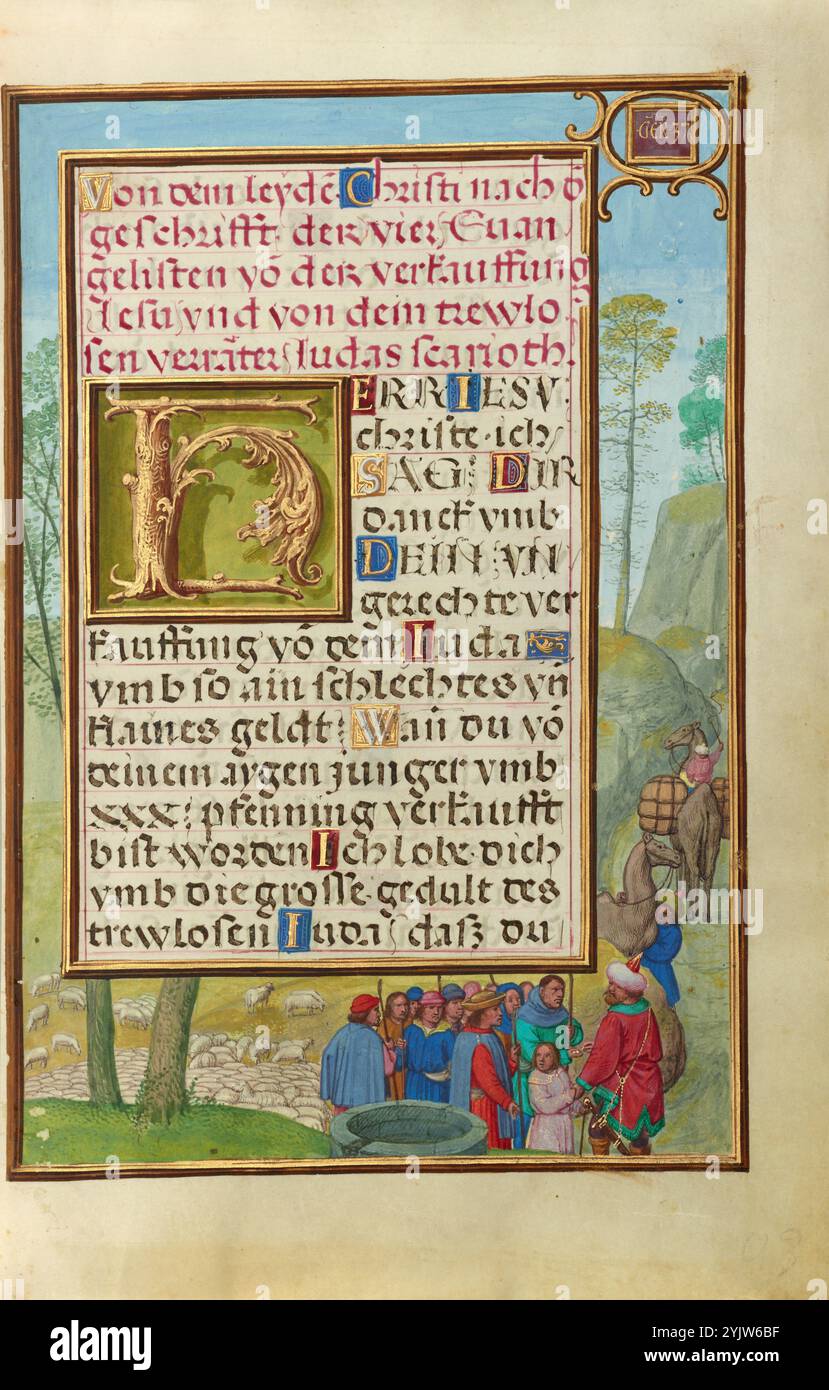 GEN·37
Von dem leydē Christi nach d̄
geschrifft der vier Euan
gelisten vō der verkauffung
Iesu vnd von dem trewlo
sen verräter Iudas scarioth.
HERR IESV
christe ich
SAG DIR
danck vmb
DEIN VN
gerechte ver
kauffung vō dem Iuda
vmb so ain schlechtes vn̄
klaines geldt Wan̄ du vō
deinem aygen junger vmb
xxx pfenning verkaufft
bist worden Ich lobe dich
vmb die grosse gedult des
trewlosen Iudas dasz du
alamy
Image ID: 2YJW6BF
www.alamy.com